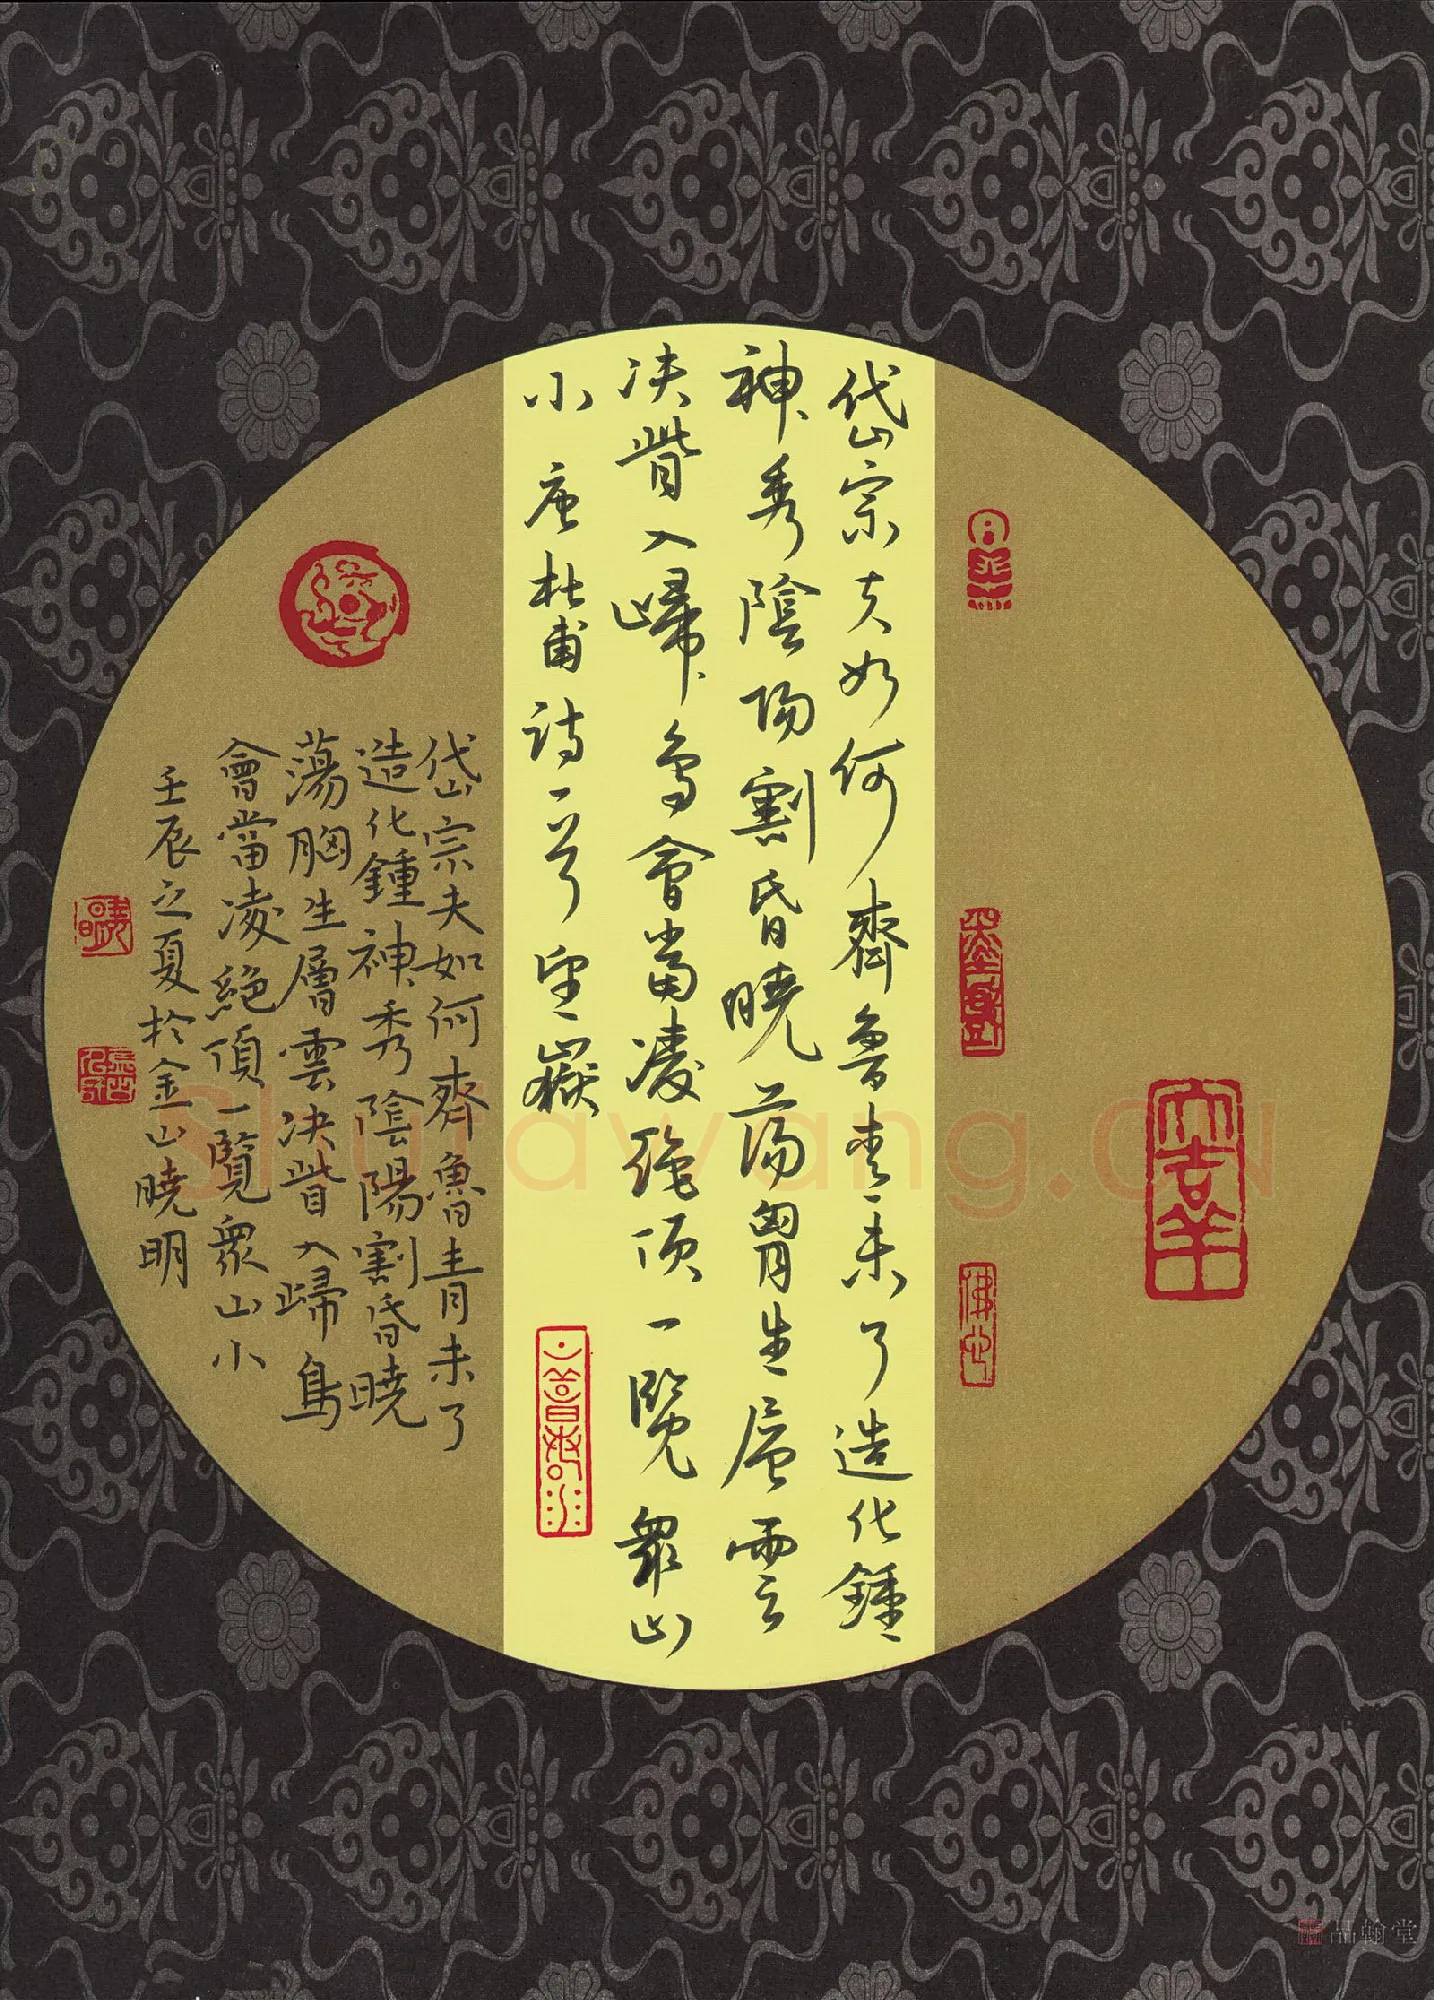 岱宗夫如何齊魯青未了造化鍾
神秀陰陽割昏曉蕩胷生層雲
决眥入歸鳥會當凌絶頂一覽衆山
小 唐杜甫詩一首望嶽
岱宗夫如何齊魯青未了
造化鍾神秀陰陽割昏曉
蕩胸生層雲决眥入歸鳥
會當凌絕頂一覽衆山小
壬辰之夏於金山曉明
Shufawang.cn
品翰堂